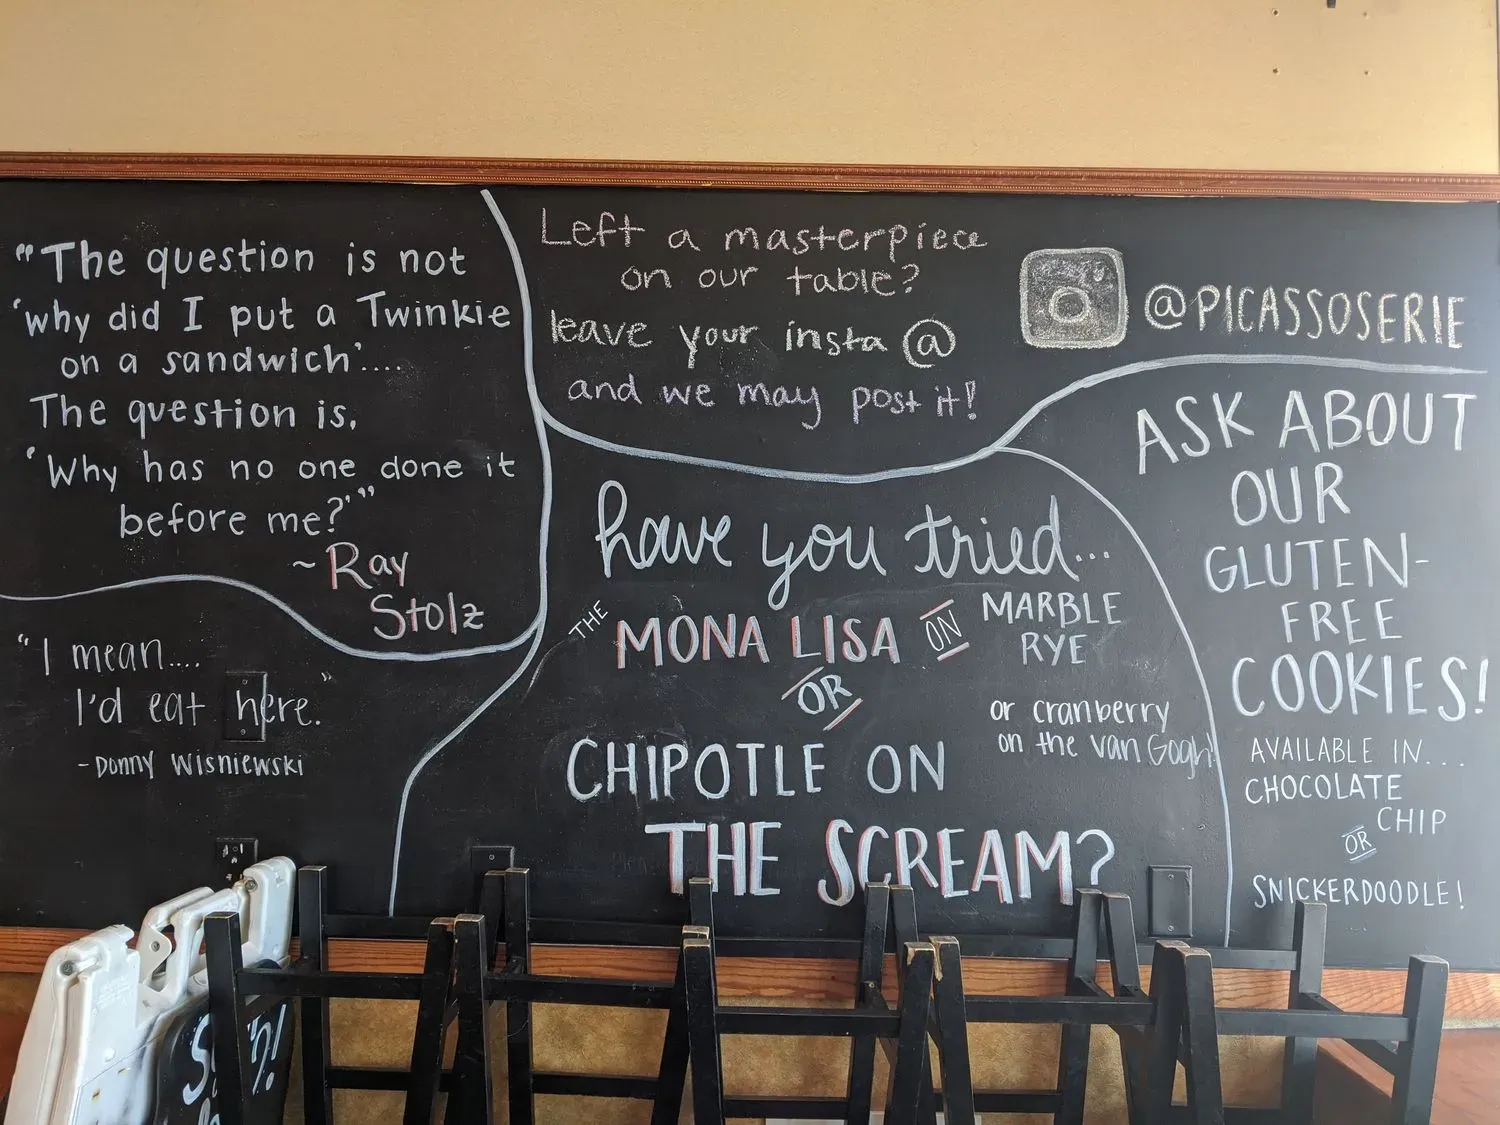 "The question is not
'why did I put a Twinkie
on a sandwich'....
The question is,
'Why has no one done it
before me?'"
~Ray
Stolz
"I mean....
I'd eat here."
-Donny Wisniewski
Left a masterpiece
on our table?
leave your insta @
and we may post it!
@PICASSOSERIE
have you tried...
THE MONA LISA ON MARBLE
RYE
OR
or cranberry
on the Van Gogh!
CHIPOTLE ON
THE SCREAM?
ASK ABOUT
OUR
GLUTEN-
FREE
COOKIES!
AVAILABLE IN...
CHOCOLATE
CHIP
OR
SNICKERDOODLE!